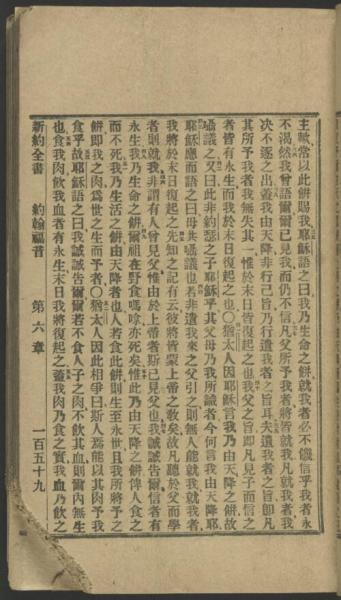 主歟常以此餅賜我耶穌語之曰我乃生命之餅就我者必不饑信乎我者永
不渴然我曾語爾爾已見我而仍不信凡父所予我者將皆就我凡就我者我
決不逐之出蓋我由天降非行己旨乃行遣我者之旨耳夫遣我者之旨卽凡
其所予我者我無失其一惟於末日皆復起之也我父之旨即凡見子而信之
者皆有永生而我於末日復起之也〇猶太人因耶穌言我乃由天降之餅故
囁議之又曰此非約瑟之子耶穌乎其父母乃我所識者今何言我由天降耶
耶穌應而語之曰毋共囁議也若非遣我來之父引之則無人能就我就我者
我將於末日復起之先知之記有云彼將皆蒙上帝之教矣故凡聽於父而學
者則就我非謂有人曾見父惟由於上帝者斯已見父也我誠誠告爾信者有
永生我乃生命之餅爾祖在野食嗎哪亦死矣惟此乃由天降之餅俾人食之
而不死我乃生活之餅由天降者也人若食此餅則生至永世且我所將予之
餅即我之肉爲世之生而予者〇猶太人因此相爭曰斯人焉能以其肉予我
食乎故耶穌語之曰我誠誠告爾爾若不食人子之肉不飲其血則爾內無生
也食我肉飲我血者有永生末日我將復起之蓋我肉乃食之實我血乃飲之
新約全書 約翰福音 第六章 一百五十九